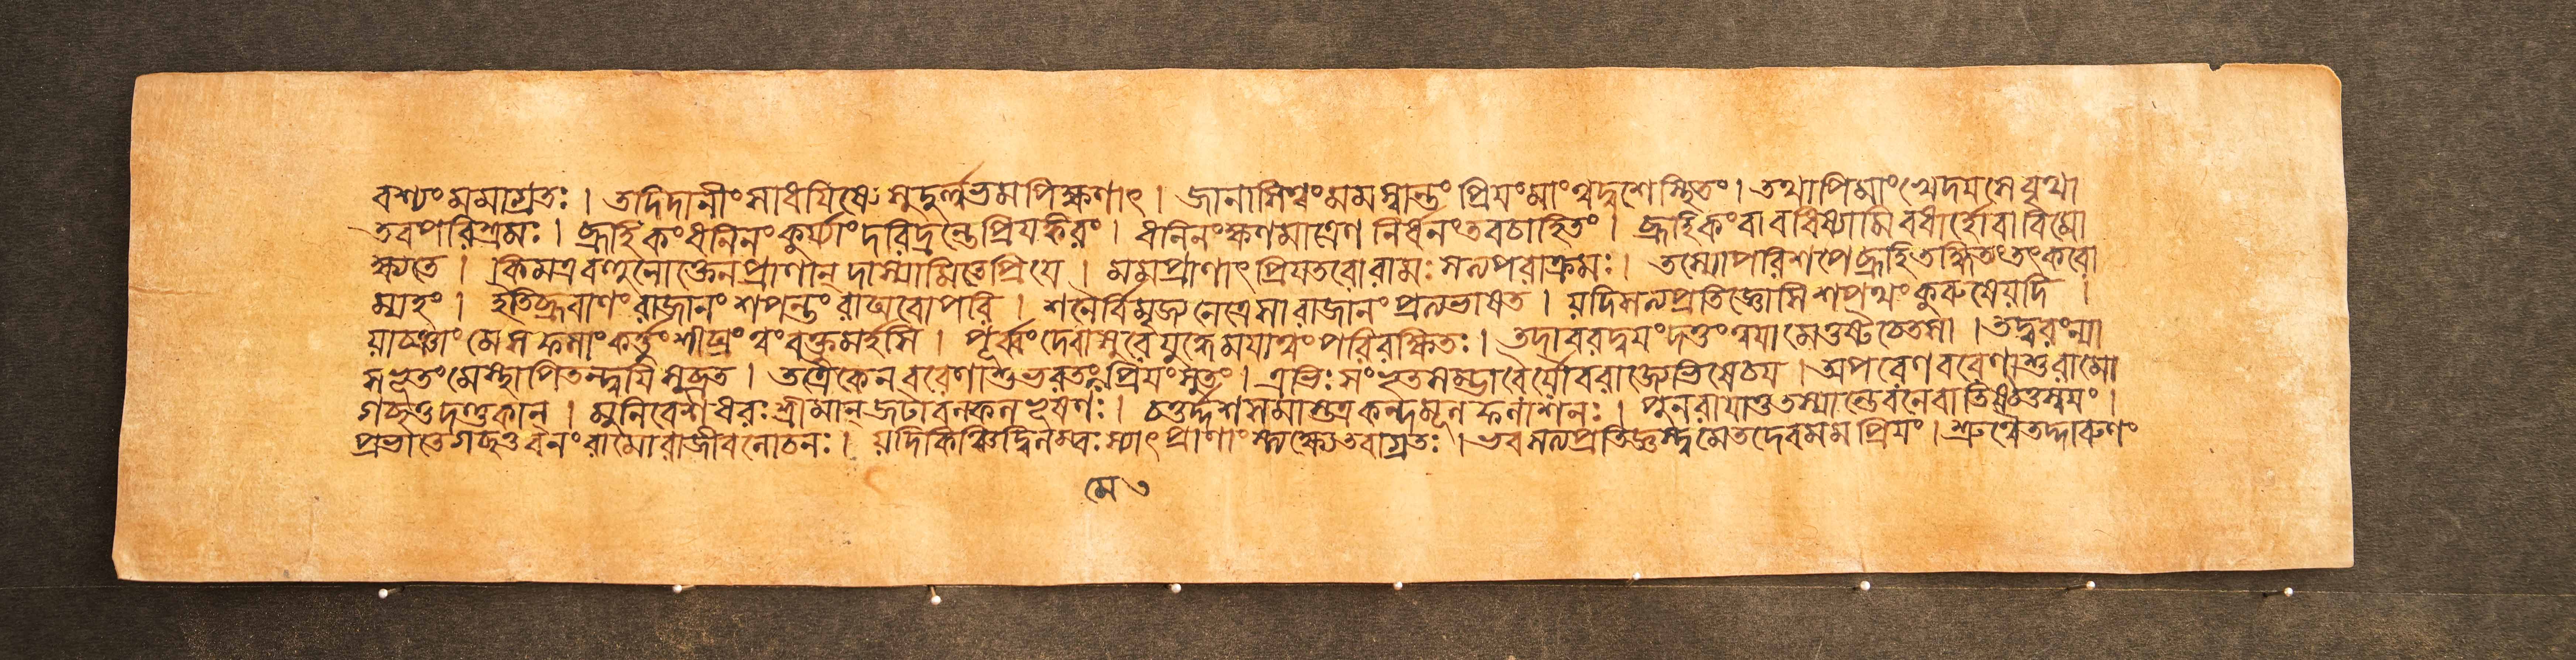 বশ্যং মমাগ্রতঃ । তদিদানীং সাধযিষ্যে সুদুর্ল্লভমপিক্ষণাৎ । জানাসিত্বং মমস্বান্তং প্রিযংমাং ত্বদ্বশেস্থিতং । তথাপিমাং খেদযসে বৃথা
তবপরিশ্রমঃ । ব্রূহি কং ধনিনং কুর্য্যাং দরিদ্রন্তেপ্রিযঙ্করং । ধনিনংক্ষণমাত্রেণ নির্ধনংতবচাহিতং । ব্রূহিকংবা বধিষ্যামি বধার্হোবা বিমো
ক্ষ্যতে । কিমত্র বহুনোক্তেনপ্রাণান্ দাস্যামিতেপ্রিযে । মমপ্রাণাৎ প্রিযতরোরামঃ সত্যপরাক্রমঃ । তস্যোপরিশপেব্রূহিতদ্ধিতংতৎকরো
ম্যহং । ইতিব্রুবাণং রাজানং শপন্তং রাঘবোপরি । শনৈর্বিমৃজ্য নেত্রেসা রাজানং প্রত্যভাষত । যদিসত্যপ্রতিজ্ঞোসি শপথং কুরুষেযদি ।
যাচ্ঞাং মেসফলাং কর্ত্তুং শীঘ্রং ত্বংবক্তুমর্হসি । পূর্ব্বং দেবাসুরে যুদ্ধেমযাত্বং পরিরক্ষিতঃ । তদাবরদ্বযংদত্তং ত্বযা মেতুষ্টচেতসা । তদ্বরংন্যা
সভূতংমেস্থাপিতন্ত্বযি সুব্রত । তত্রৈকেন বরেণাশুভরতং প্রিযং সুতং । এভিঃ সংভৃতসম্ভারৈর্যৌবরাজ্যেভিষেচয । অপরেণ বরেণাশুরামো
গচ্ছতুদণ্ডকান্ । মুনিবেশধরঃ শ্রীমান্ জটাবল্কলভূষণঃ । চতুর্দ্দশ সমাস্তত্র কন্দমূলফলাশনঃ । পুনরাযাতুতস্যান্তেবনেবাতিষ্ঠতুস্বযং ।
প্রভাতেগচ্ছতু বনং রামোরাজীবলোচনঃ । যদিকিঞ্চিদ্বিলম্বঃ স্যাৎ প্রাণাংস্ত্যক্ষ্যেতবাগ্রতঃ । ভবসত্যপ্রতিজ্ঞস্ত্বমেতদেবমমপ্রিযং । শ্রুত্বৈতদ্দারুণং